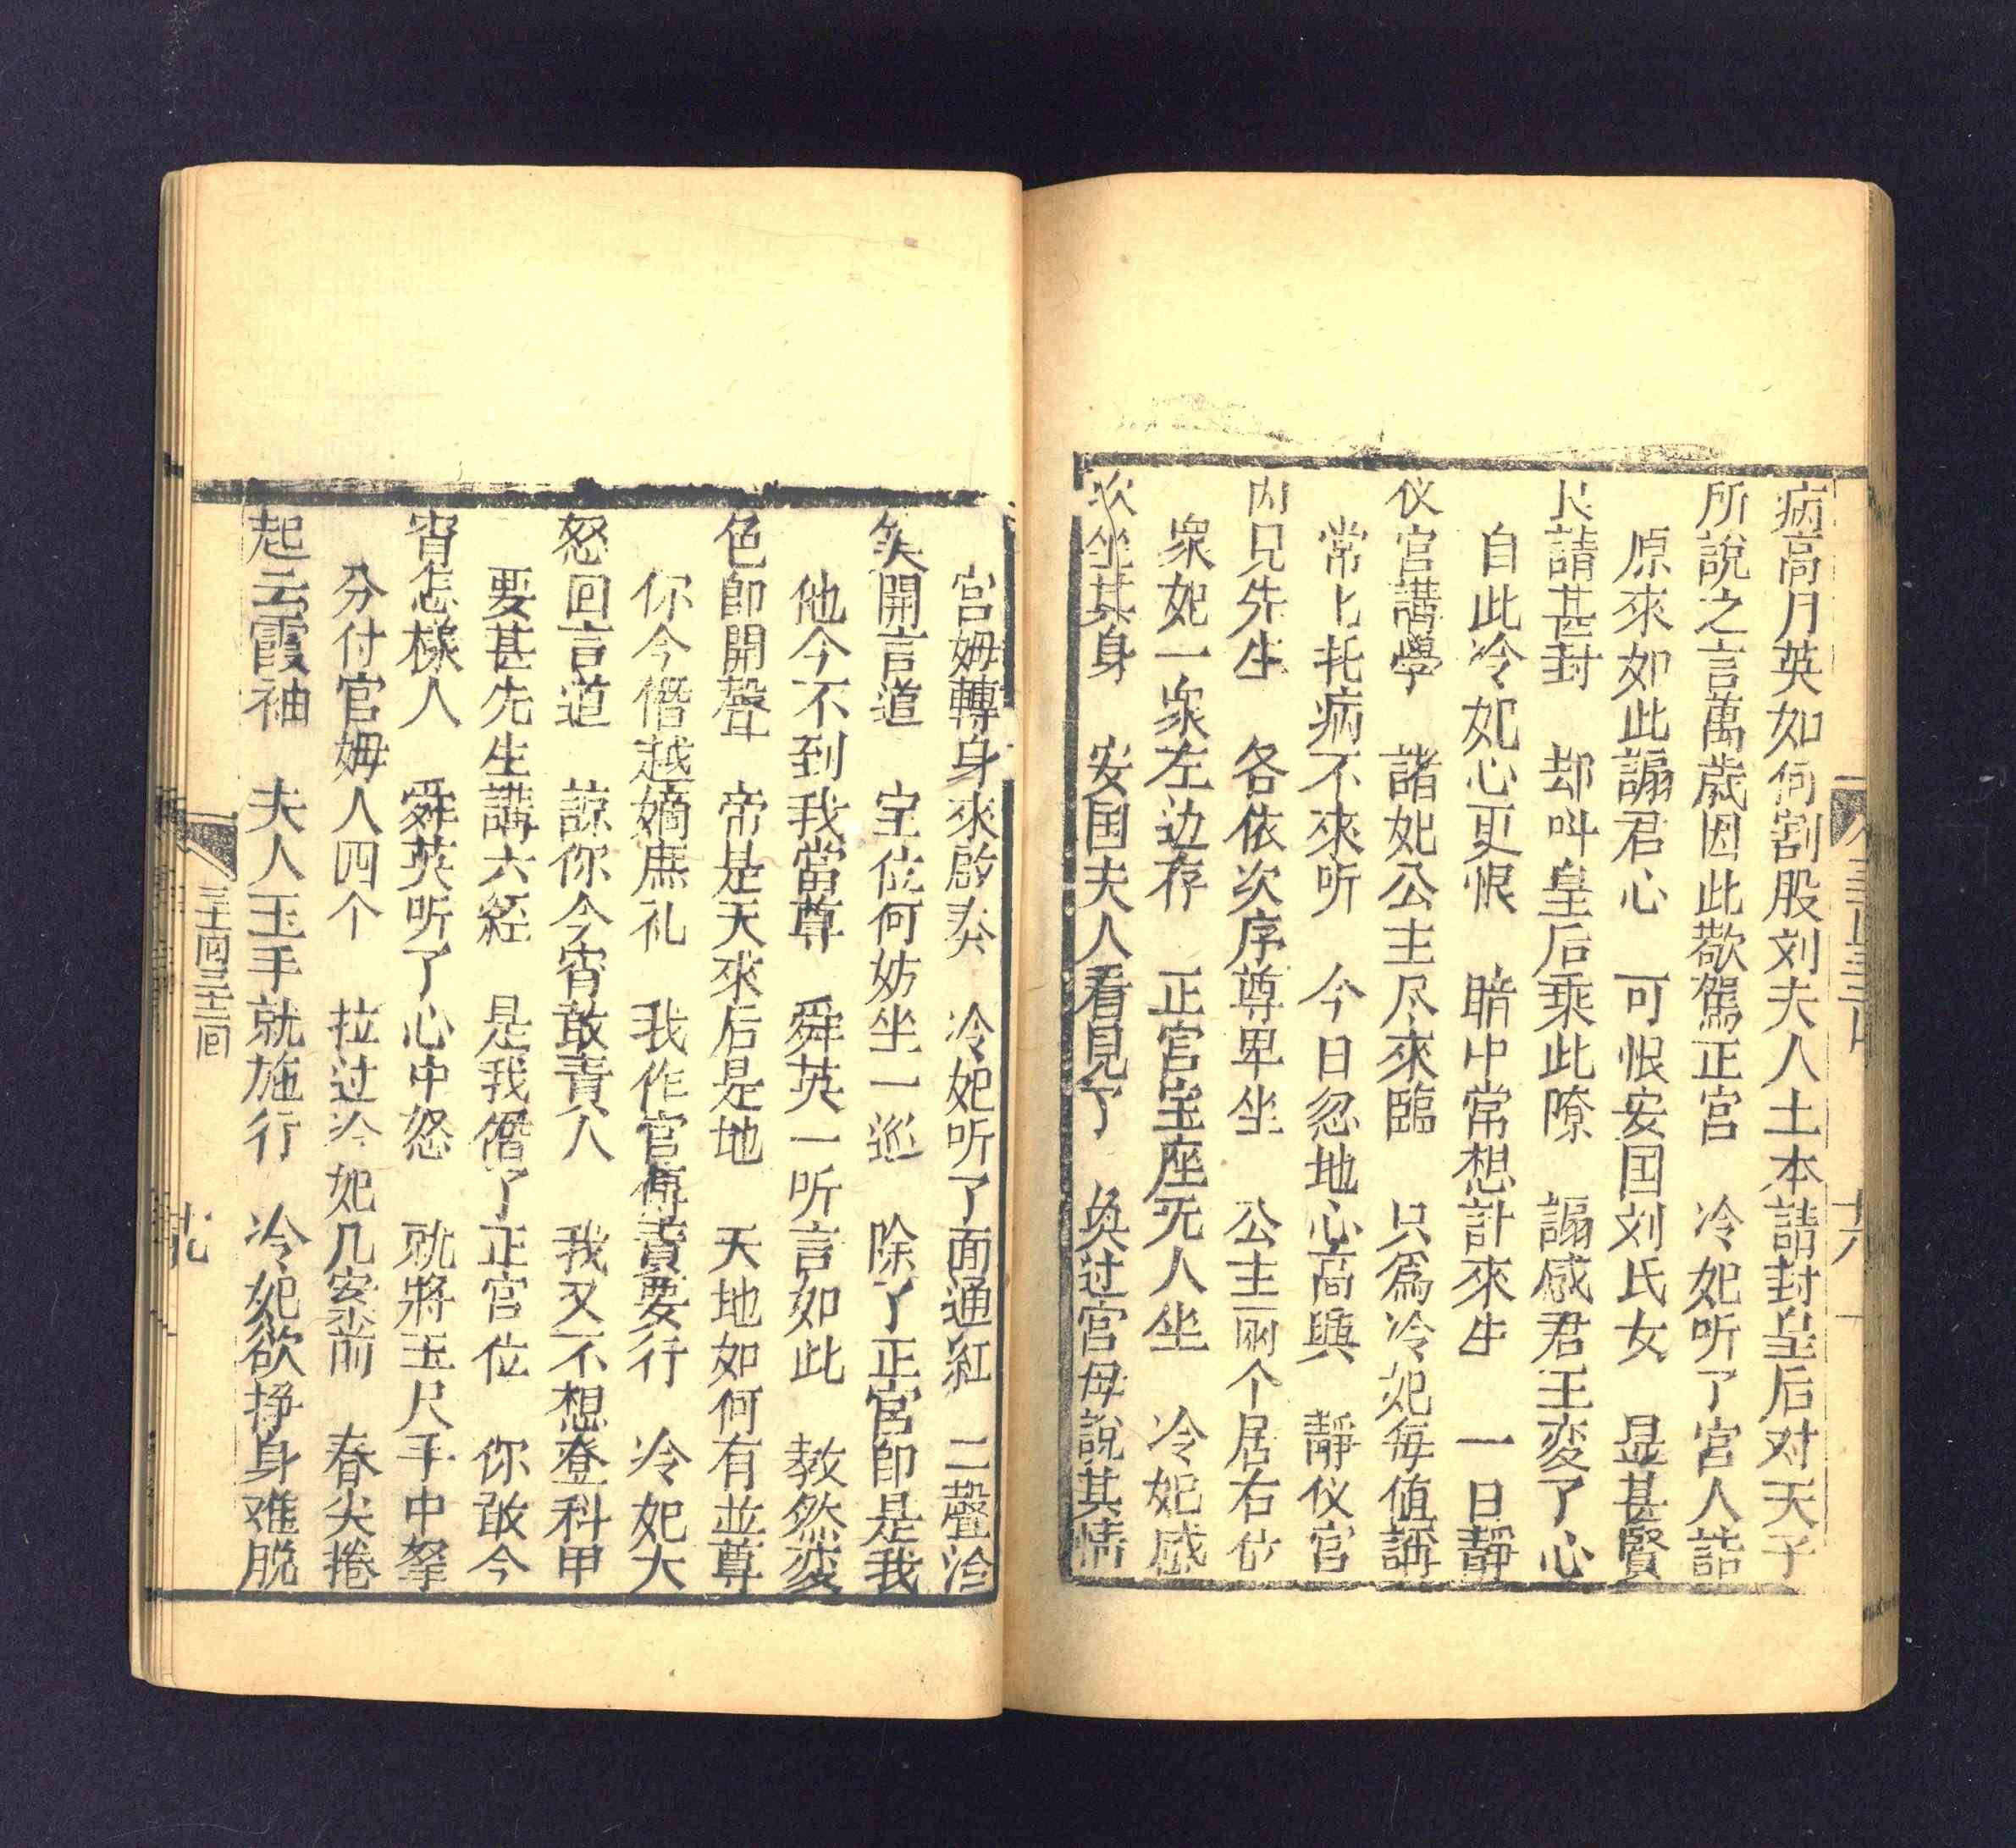 病高月英如何割股刘夫人土本詰封皇后对天子
所說之言萬歲因此歡駕正宫　冷妃听了宫人詰
原來如此謆君心　可恨安国刘氏女　显甚賢
良請甚封　却叫皇后乘此隙　謆感君王変了心
自此冷妃心更恨　暗中常想計來生　一日静
仪宫講學　諸妃公主尽來臨　只爲冷妃每值講
常匕托病不來听　今日忽地心高興　静仪宫
内見先生　各依次序尊卑坐　公主兩个居右位
衆妃一衆左边存　正宫宝座死人坐　冷妃感
欢坐其身　安国夫人看見了　奂过宫母說其情
宫姆轉身來啟奏　冷妃听了面通紅　二聲冷
笑開言道　宝位何妨坐一巡　除了正宫即是我
他今不到我當尊　舜英一听言如此　教然変
色即開聲　帝是天來后是地　天地如何有並尊
你今僭越嫡庶礼　我作官傅責要行　冷妃大
怒回言道　諒你今宵敢責人　我又不想登科甲
要甚先生講六経　是我僭了正宫位　你敢今
宵怎樣人　舜英听了心中怒　就將玉尺手中拏
分付官姆人四个　拉过冷妃几案前　春尖捲
起云霞袖　夫人玉手就施行　冷妃欲挣身难脱